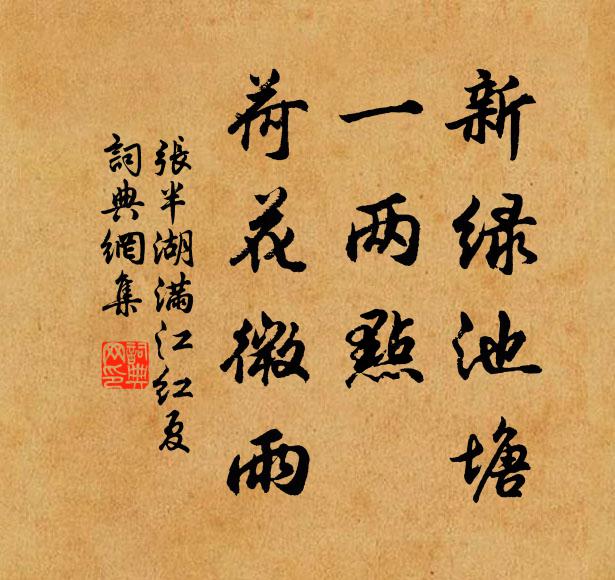 新绿池塘
一两點
荷花微雨
張半湖滿江红夏
詞典網集
詞典网印